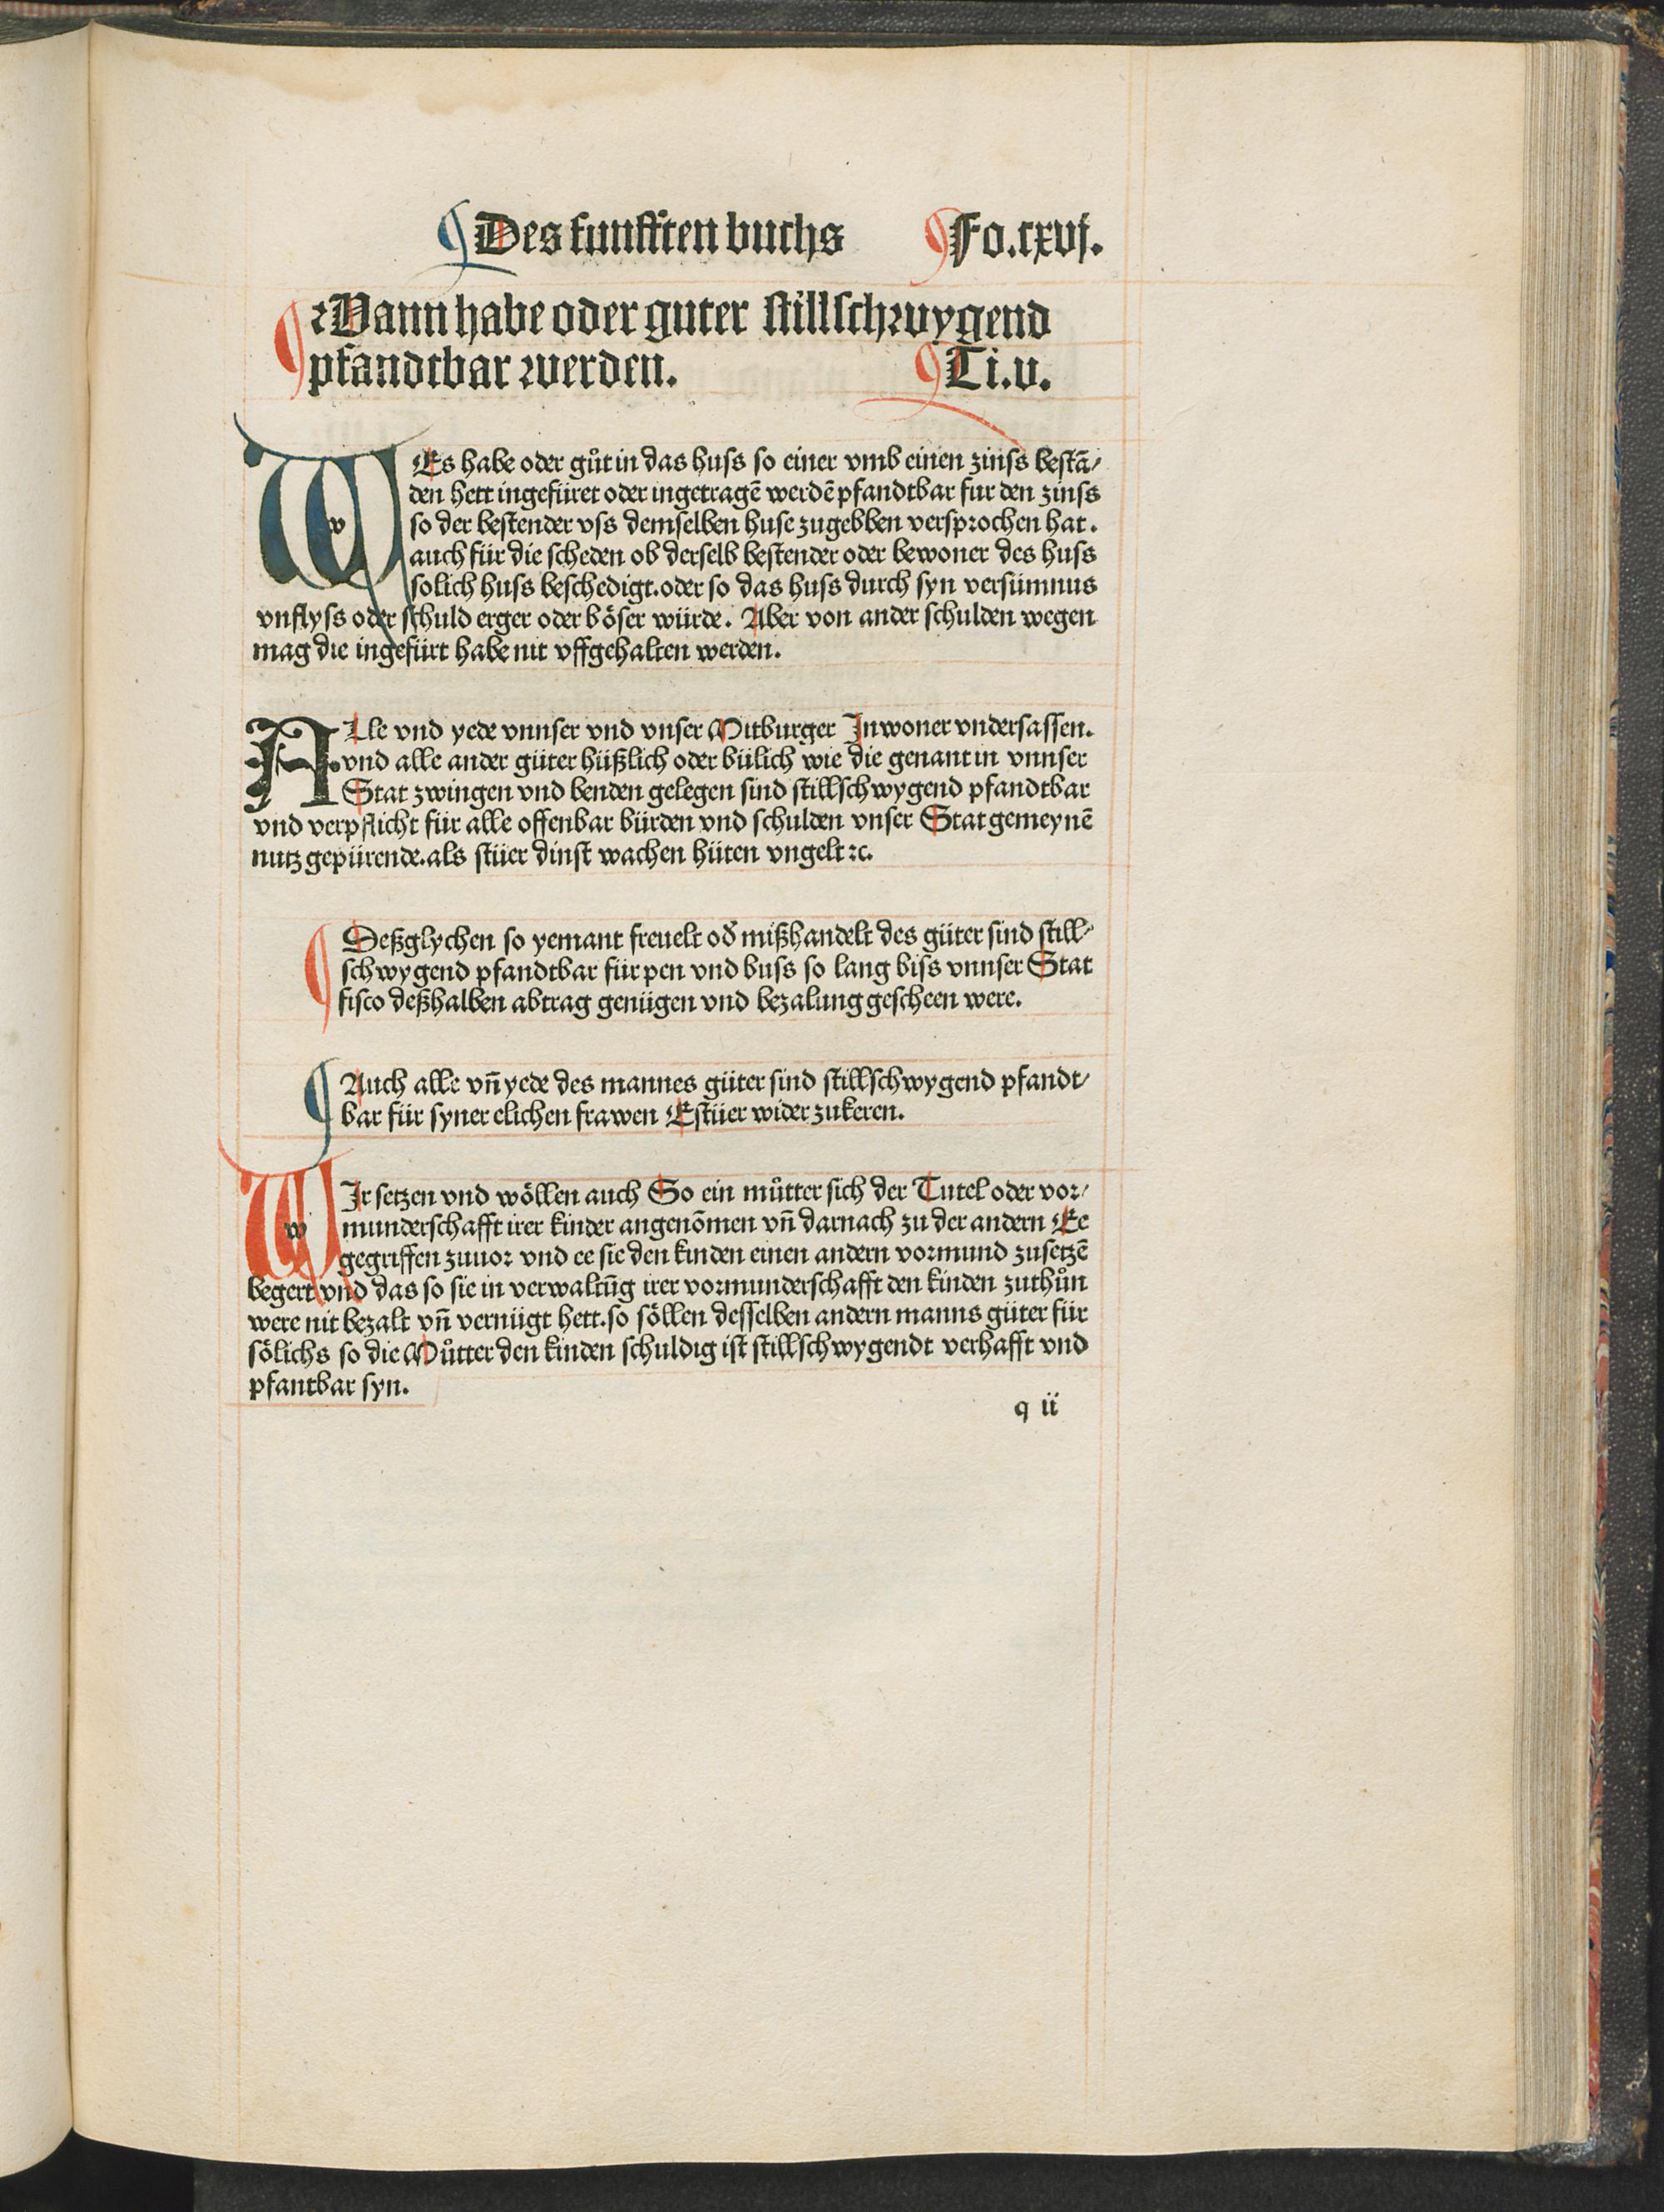 Des funfften buchs Fo.cxvj.
Wann habe oder guter stillschwygend
pfandtbar werden. Ti.v.
WEs habe oder gůt in das huss so einer vmb einen zinss bestā⸗
den hett ingefüret oder ingetragē werdē pfandtbar fur den zinss
so der bestender vss demselben huse zugebben versprochen hat.
auch für die scheden ob derselb bestender oder bewoner des huss
solich huss beschedigt. oder so das huss durch syn versümnus
vnflyss oder schuld erger oder böser würde. Aber von ander schulden wegen
mag die ingefürt habe nit vffgehalten werden.
ALle vnd yede vnnser vnd vnser Mitburger Inwoner vndersassen.
vnd alle ander güter hüßlich oder bülich wie die genant in vnnser
Stat zwingen vnd benden gelegen sind stillschwygend pfandtbar
vnd verpflicht für alle offenbar bürden vnd schulden vnser Stat gemeynē
nutz gepürende. als stüer dinst wachen hüten vngelt ꝛc.
Deßglychen so yemant freuelt od̓ mißhandelt des güter sind still⸗
schwygend pfandtbar für pen vnd buss so lang biss vnnser Stat
fisco deßhalben abtrag genügen vnd bezalung gescheen were.
Auch alle vn̄ yede des mannes güter sind stillschwygend pfandt⸗
bar für syner elichen frawen Estüer wider zukeren.
WIr setzen vnd wöllen auch So ein můtter sich der Tutel oder vor⸗
munderschafft irer kinder angenōmen vn̄ darnach zu der andern Ee
gegriffen zuuor vnd ee sie den kinden einen andern vormund zusetzē
begert vnd das so sie in verwaltūg irer vormunderschafft den kinden zuthůn
were nit bezalt vn̄ vernügt hett. so söllen desselben andern manns güter für
sölichs so die Můtter den kinden schuldig ist stillschwygendt verhafft vnd
pfantbar syn.
q ii